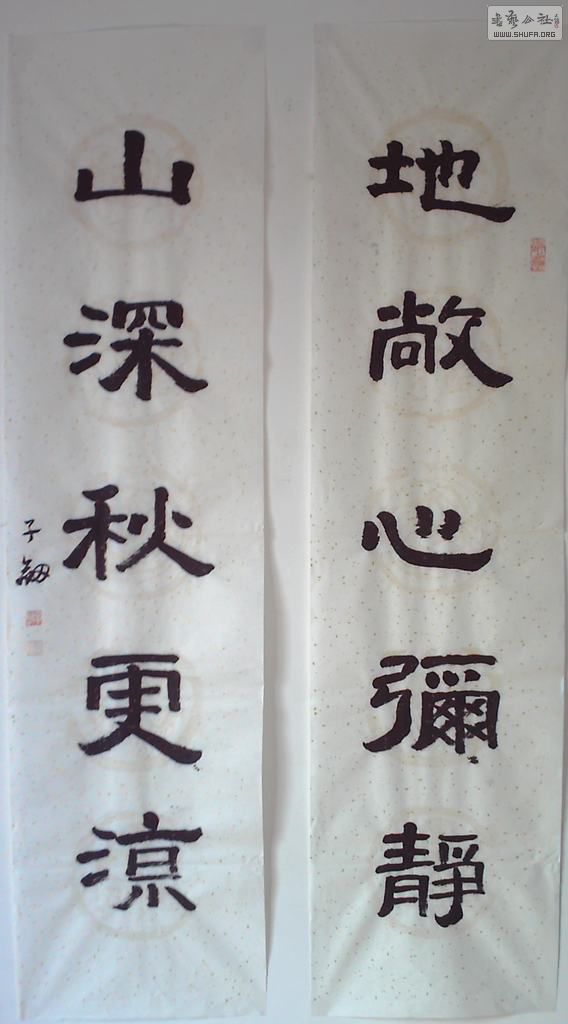 地敞心彌靜
山深秋更涼
子劔
書藝公社
WWW.SHUFA.ORG